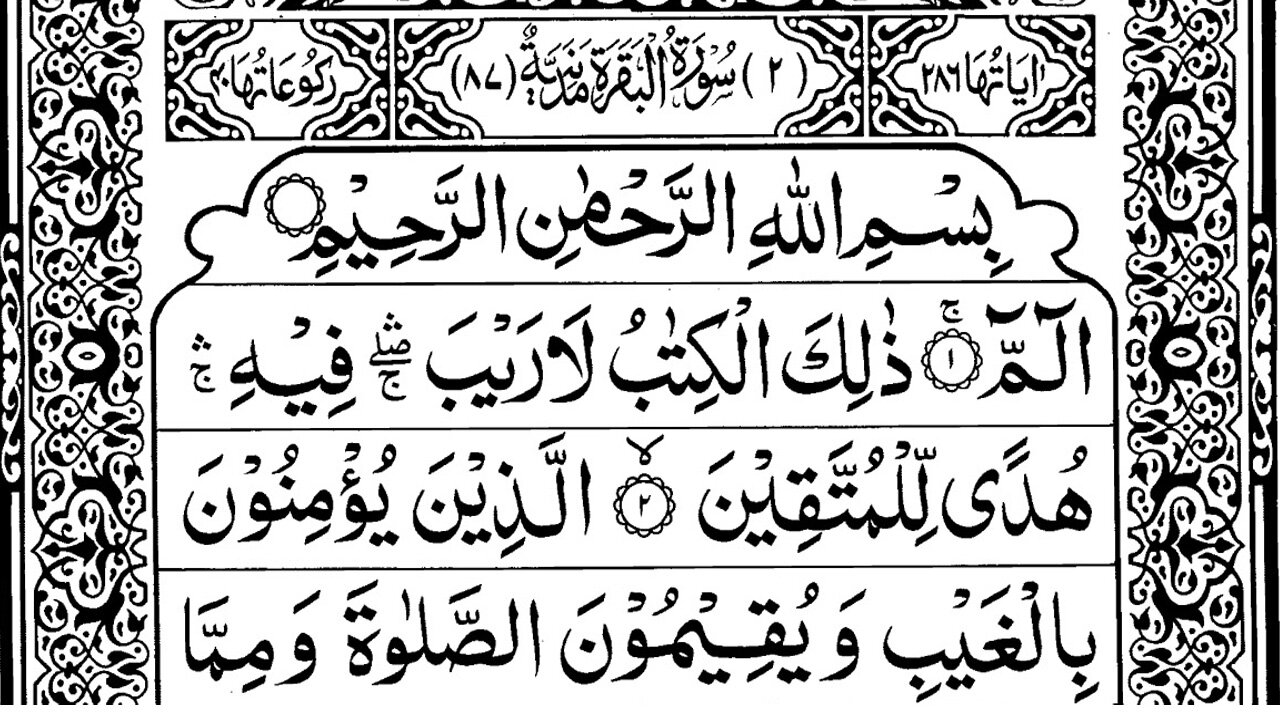 اٰيَاتُهَا ٢٨٦ (٢) سُوْرَةُ الْبَقَرَةِ مَدَنِيَّةٌ (٨٧) رُكُوْعَاتُهَا ٤٠
بِسْمِ اللّٰهِ الرَّحْمٰنِ الرَّحِيْمِ
الٓـمّٓ ۚ‏﴿١﴾ ذٰلِكَ الْكِتٰبُ لَا رَيْبَ ۛۖۚ فِيْهِ ۛۚ
هُدًى لِّلْمُتَّقِيْنَ ۙ‏﴿٢﴾ الَّذِيْنَ يُؤْمِنُوْنَ
بِالْغَيْبِ وَ يُقِيْمُوْنَ الصَّلٰوةَ وَ مِمَّا